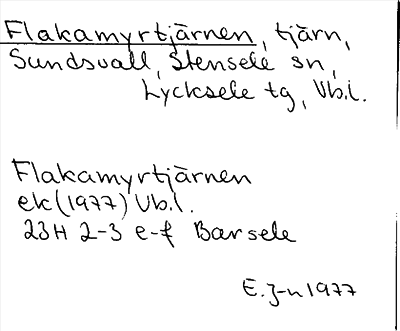 Flakamyrtjärnen, tjärn,
Sundsvall, Stensele sn,
Lycksele tg, Vb.l.
Flakamyrtjärnen
ek(1977) Vb.l.
23H 2-3 e-f Barsele
E.J-n 1977